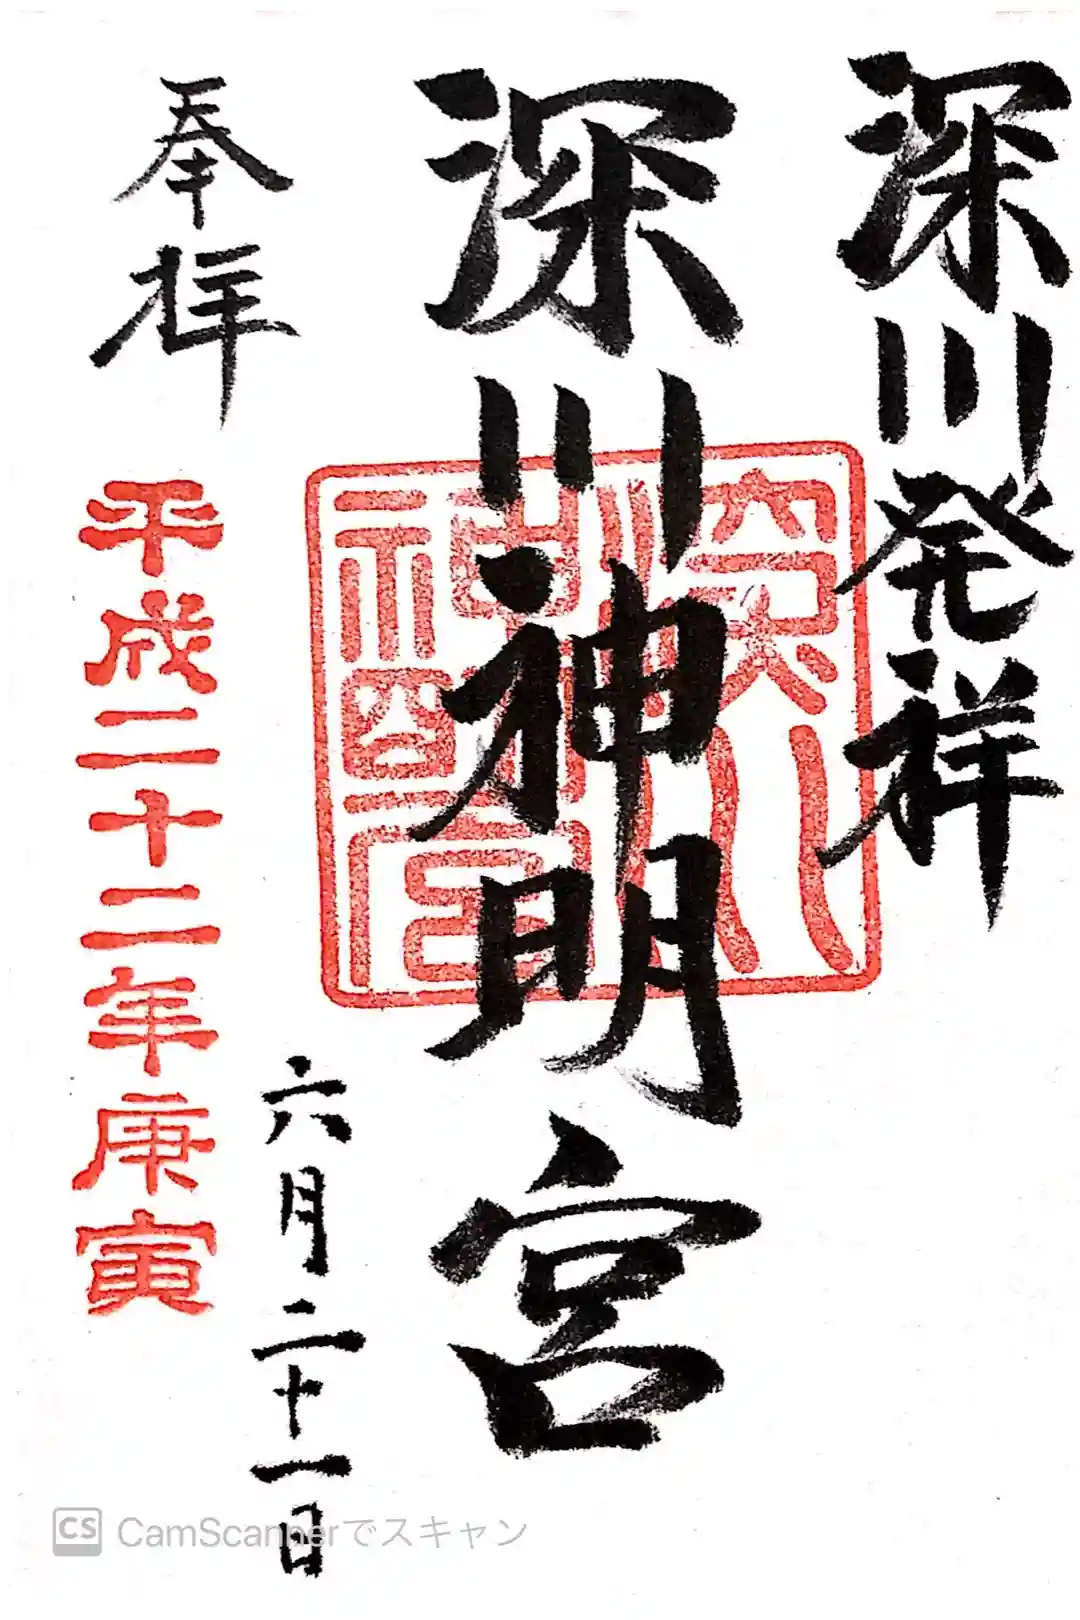 深川発祥
深川神明宮
奉拝
平成二十二年庚寅
六月二十一日
深川
神明宮
CS CamScannerでスキャン